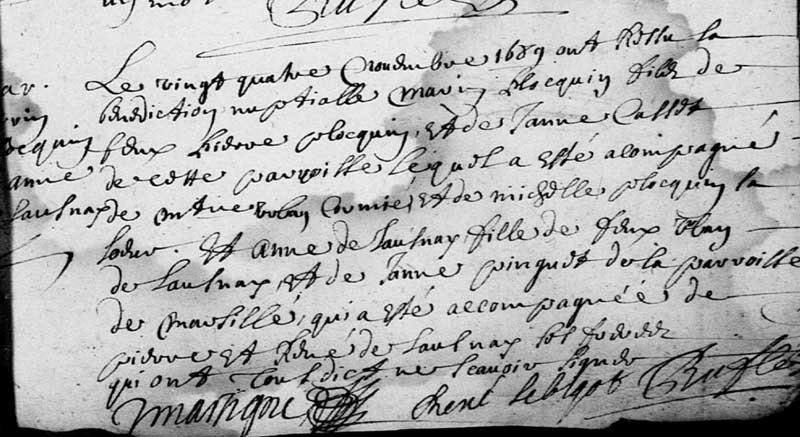 Le vingt quatre novembre 1689 ont Ressu la
benediction nuptialle Marin plocquin fils de
feux pierre plocquin, et de Janne Casset
de cette parroisse lequel a esté acompagné
de mtre urban Cormié, et de michelle plocquin la
soeur. Et anne de Laulnay fille de feux
de Laulnay et de Janne pinguet de la parroisse
de marsillé, qui a esté accompagnéé de
pierre et René de Laulnay ses freres
qui ont tous dict ne scavoir signer
René Lebigot